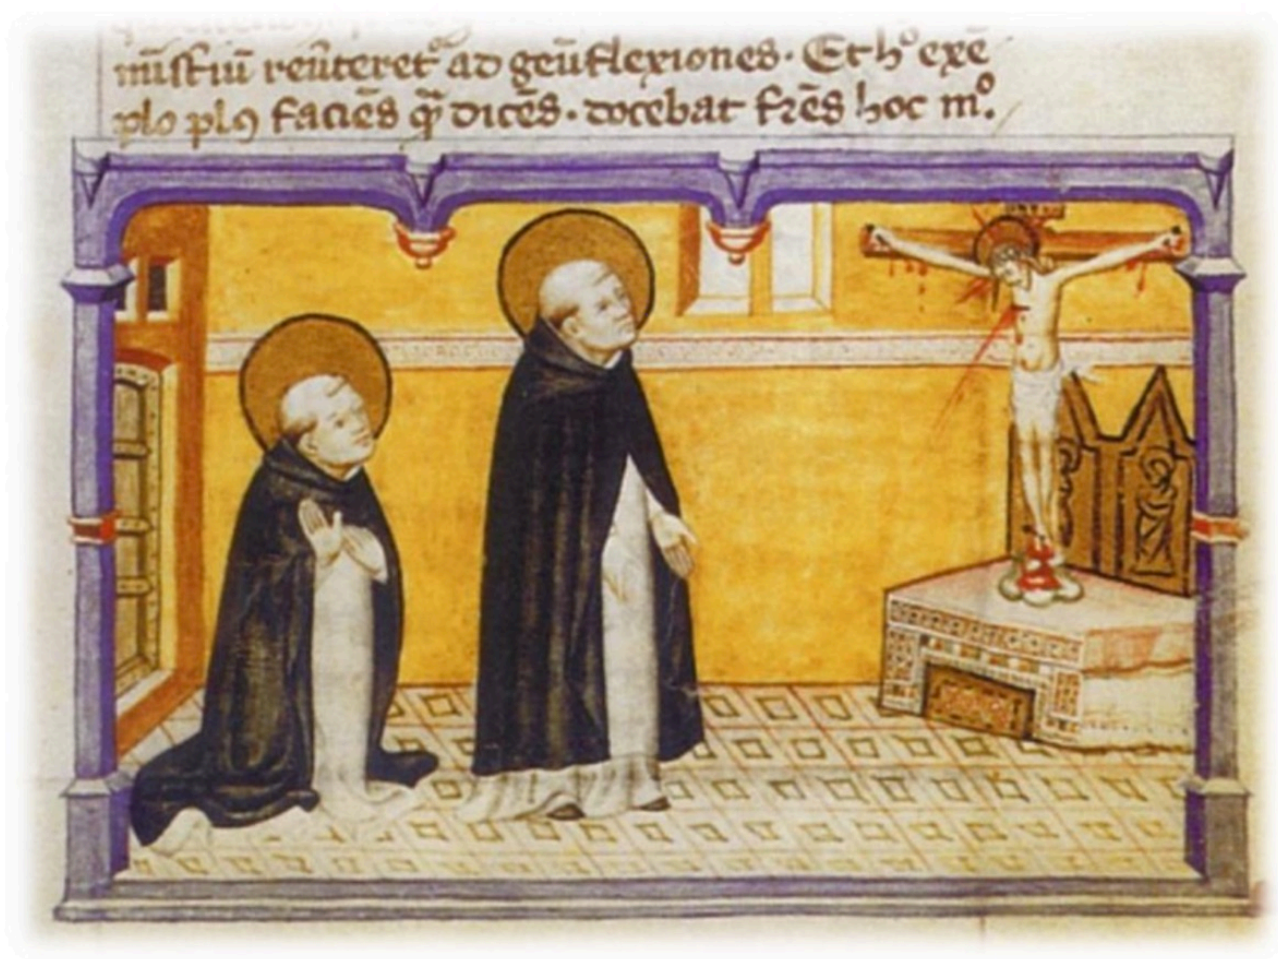 mĩstiũ reũteret᷒ ad geũflexiones. Et hͦ exẽ
plo plꝰ faciẽs q̃ dicẽs. docebat fr̃es hoc mͦ.